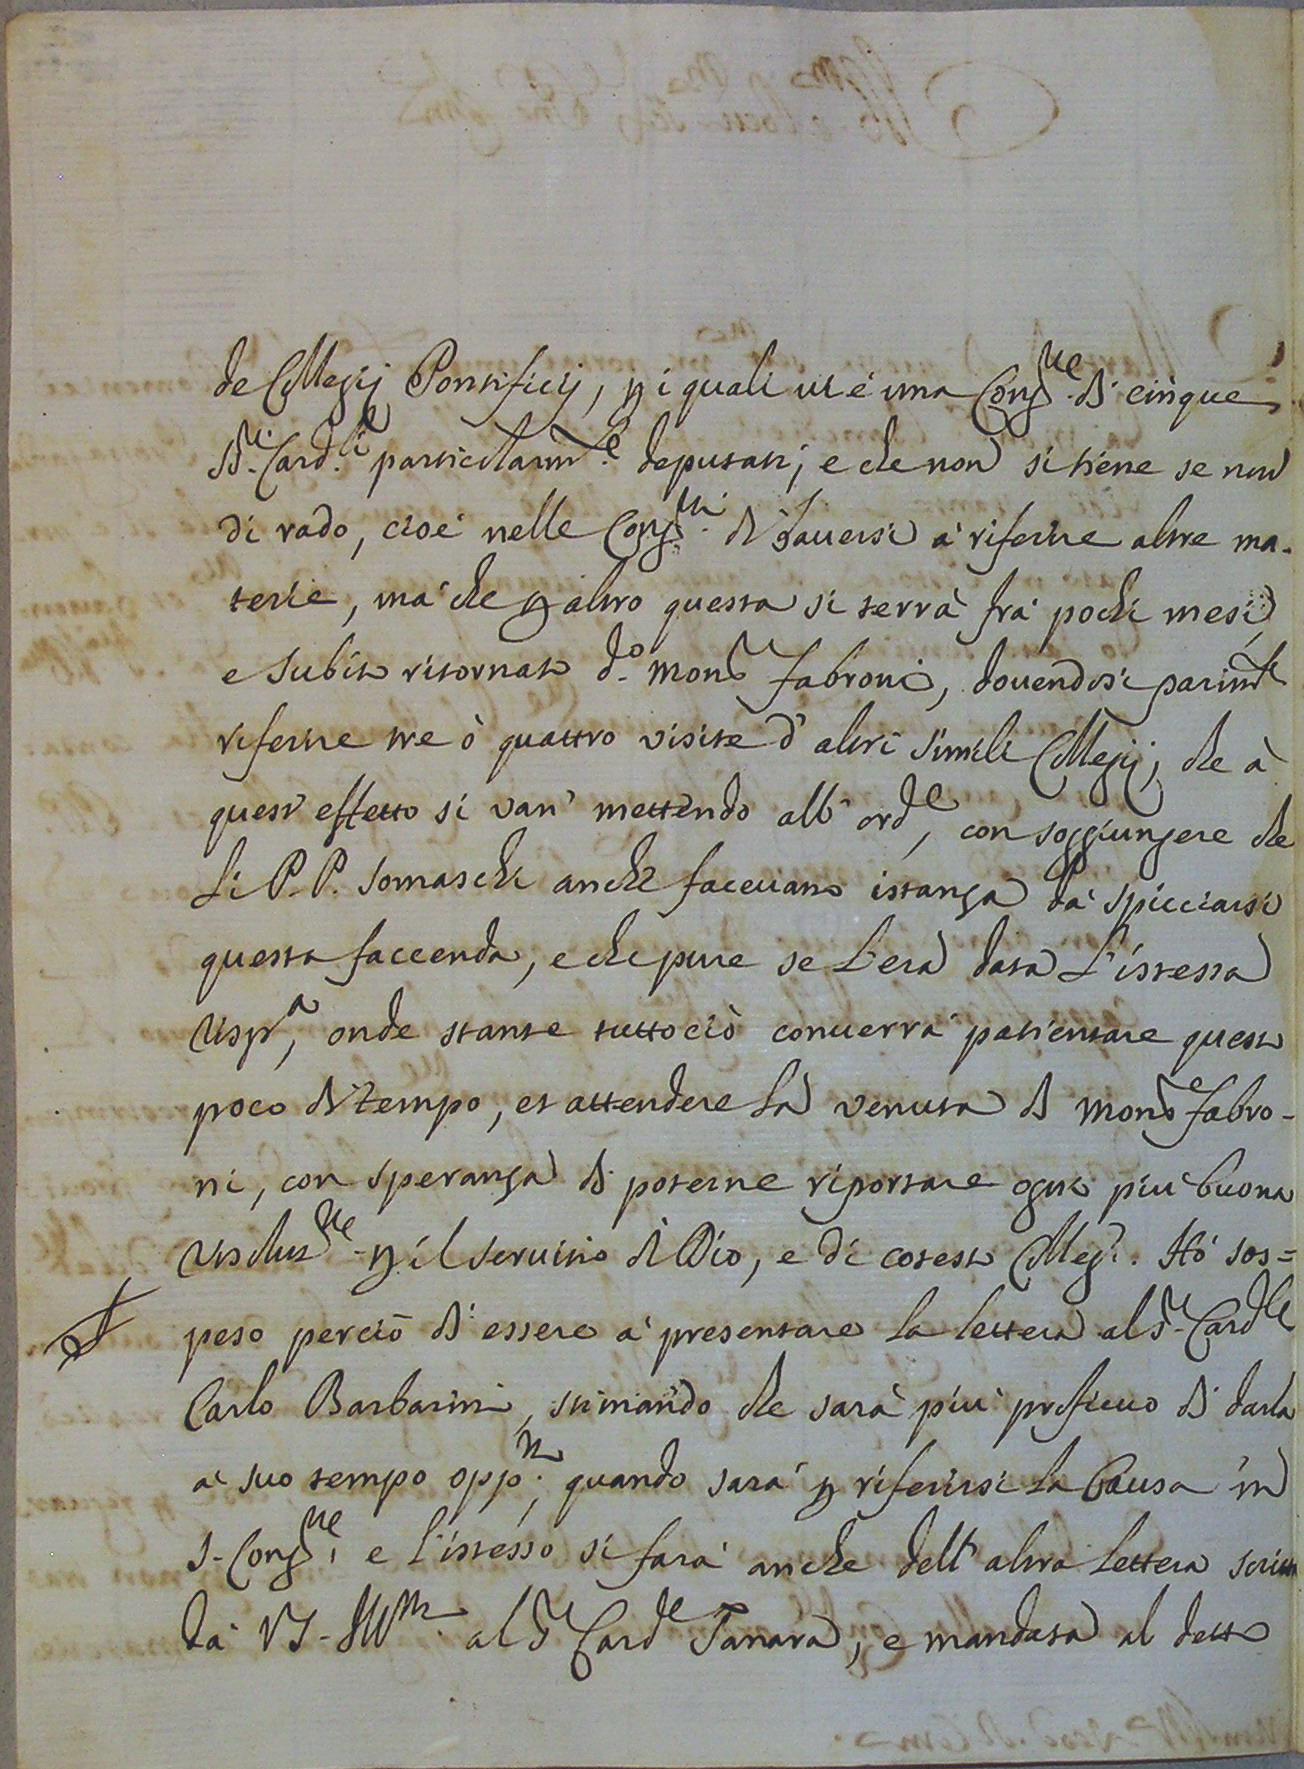 de Collegij Pontificij, p i quali ui è una Cong.ne di cinque
SS.ri Card.li particolarm.te deputati, e che non si tiene se non
di rado, cioè nelle Cong.ni di hauersi à riferire altre ma-
terie, mà che p altro questa si terrà frà pochi mesi,
e subito ritornato d.o Mons.r Fabroni, douendosi parim.te
riferire tre ò quattro visite d' altri simili Collegij, che à
quest' effetto si van' mettendo all' ord.e, con soggiungere che
li P.P. Somaschi anche faceuano istanza dà spicciarsi
questa faccenda, e che pure se l'era data l'istessa
risp.a, onde stante tuttociò conuerrà patientare questo
poco di tempo, et attendere la venuta di Mons.r Fabro-
ni, con speranza di poterne riportare ogni più buona
risoluz.ne p il seruitio di Dio, e di cotesto Colleg.o. Hò sos=
peso perciò di essere à presentare la lettera al S.r Card.le
Carlo Barbarini, stimando che sarà più proficuo di darla
à suo tempo opp.no, quando sarà p riferirsi la Causa in
S. Cong.ne, e l'istesso si farà anche dell' altra lettera scritta
dà VS. Ill.ma al S.r Card.e Tanara, e mandata al detto